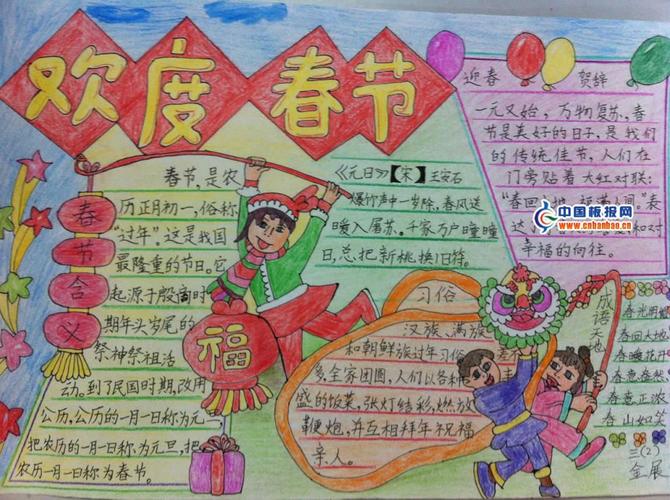 欢度春节
春节含义
春节,是农
历正月初一,俗称
“过年”这是我国
最隆重的节日。它
起源于殷商时
期年头岁尾的
祭神祭祖活
动。到了民国时期,改用
公历,公历的一月一日称为元
把农历的一月一日称为元旦,把
农历一月一日称为春节。
福
《元日》【宋】王安石
爆竹声中一岁除,春风送
暖入屠苏。千家万户瞳瞳
日,总把新桃换旧符。
习俗
汉族、满族
和朝鲜族过年习俗差不
多,全家团圆,人们以各种
盛的饭菜,张灯结彩,燃放
鞭炮,并互相拜年祝福
亲人。
迎春 贺辞
一元又始,万物复苏,春
节是美好的日子,是我们
的传统佳节,人们在
门旁贴着大红对联:
“春回 地 满人间”表
达 和对
幸福的向往。
中国板报网
www.cnbanbao.cn
成语天地
春光明媚
春回大地
春暖花
春意
春意正浓
春山如笑
三(2)
金展